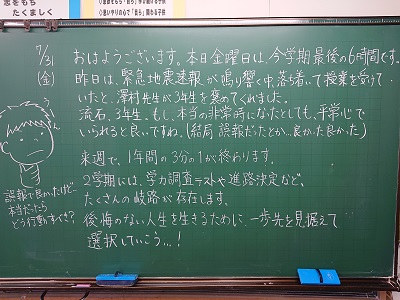 志をもち
たくましく
7/31
(金)
おはようございます。本日金曜日は、今学期最後の6時間です。
昨日は、緊急地震速報が鳴り響く中、落ち着いて授業を受けて
いたと、澤村先生が3年生を褒めてくれました。
流石、3年生。もし、本当の非常時になったとしても、平常心で
いられると良いですね。(結局誤報だったとか…良かった良かった)
来週で、1年間の3分の1が終わります。
2学期には、学力調査テストや進路決定など、
たくさんの岐路が存在します。
後悔のない人生を生きるために、一歩先を見据えて
選択していこう…!
う
誤報で良かったけど…
本当だったら
どう行動すべき?